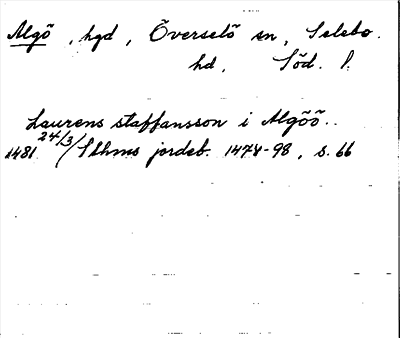 Algö, hgd, Överselö sn, Selebo
hd, Söd. l.
Laurens staffansson i Algöö..
1481 24/3 / Sthms jordeb. 1474-98, s. 66